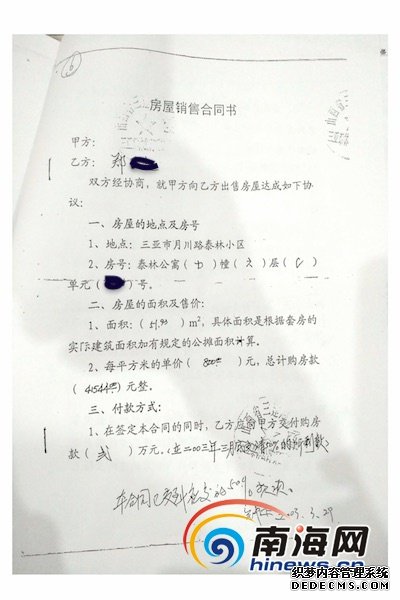 6
房屋销售合同书
甲方：
乙方： 郑
双方经协商，就甲方向乙方出售房屋达成如下协
议：
一、房屋的地点及房号
1、地点：三亚市月川路泰林小区
2、房号：泰林公寓（ ）幢（ ）层（ ）
单元（ ）号。
二、房屋的面积及售价：
1、面积：（51.93）m²，具体面积是根据套房的
实际建筑面积加有规定的公摊面积计算。
2、每平方米的单价（800）元，总计购房款
（41544）元整。
三、付款方式：
1、在签定本合同的同时，乙方应向甲方交付购房
款（贰）万元。
本合同已收到
2003.3.29
南海网
hinews.cn
织梦内容管理系统
DEDECMS.COM